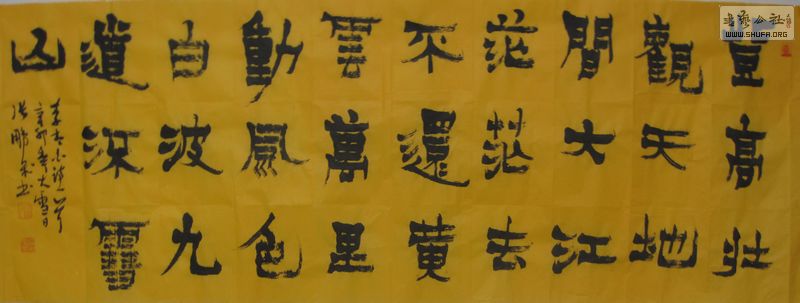 登高壯
觀天地
間大江
茫茫去
不還黃
雲萬里
動風色
白波九
道流雪
山
辛卯年大雪日
張鵬書
書藝公社
WWW.SHUFA.ORG